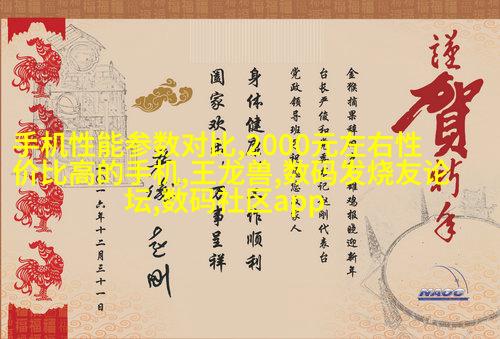 謹賀新年
金猴摘果辞 雄鸡报晓迎新年
台长严俊和 记赵刚代表台
党政领导班 祝 您 家人
身体健康 工作顺利
阖家欢乐 万事呈祥
一六年十二月三十一日
手机性能参数对比,2000元左右性
价比高的手机,王龙兽,数码发烧友论
坛,数码社区app
NAOC